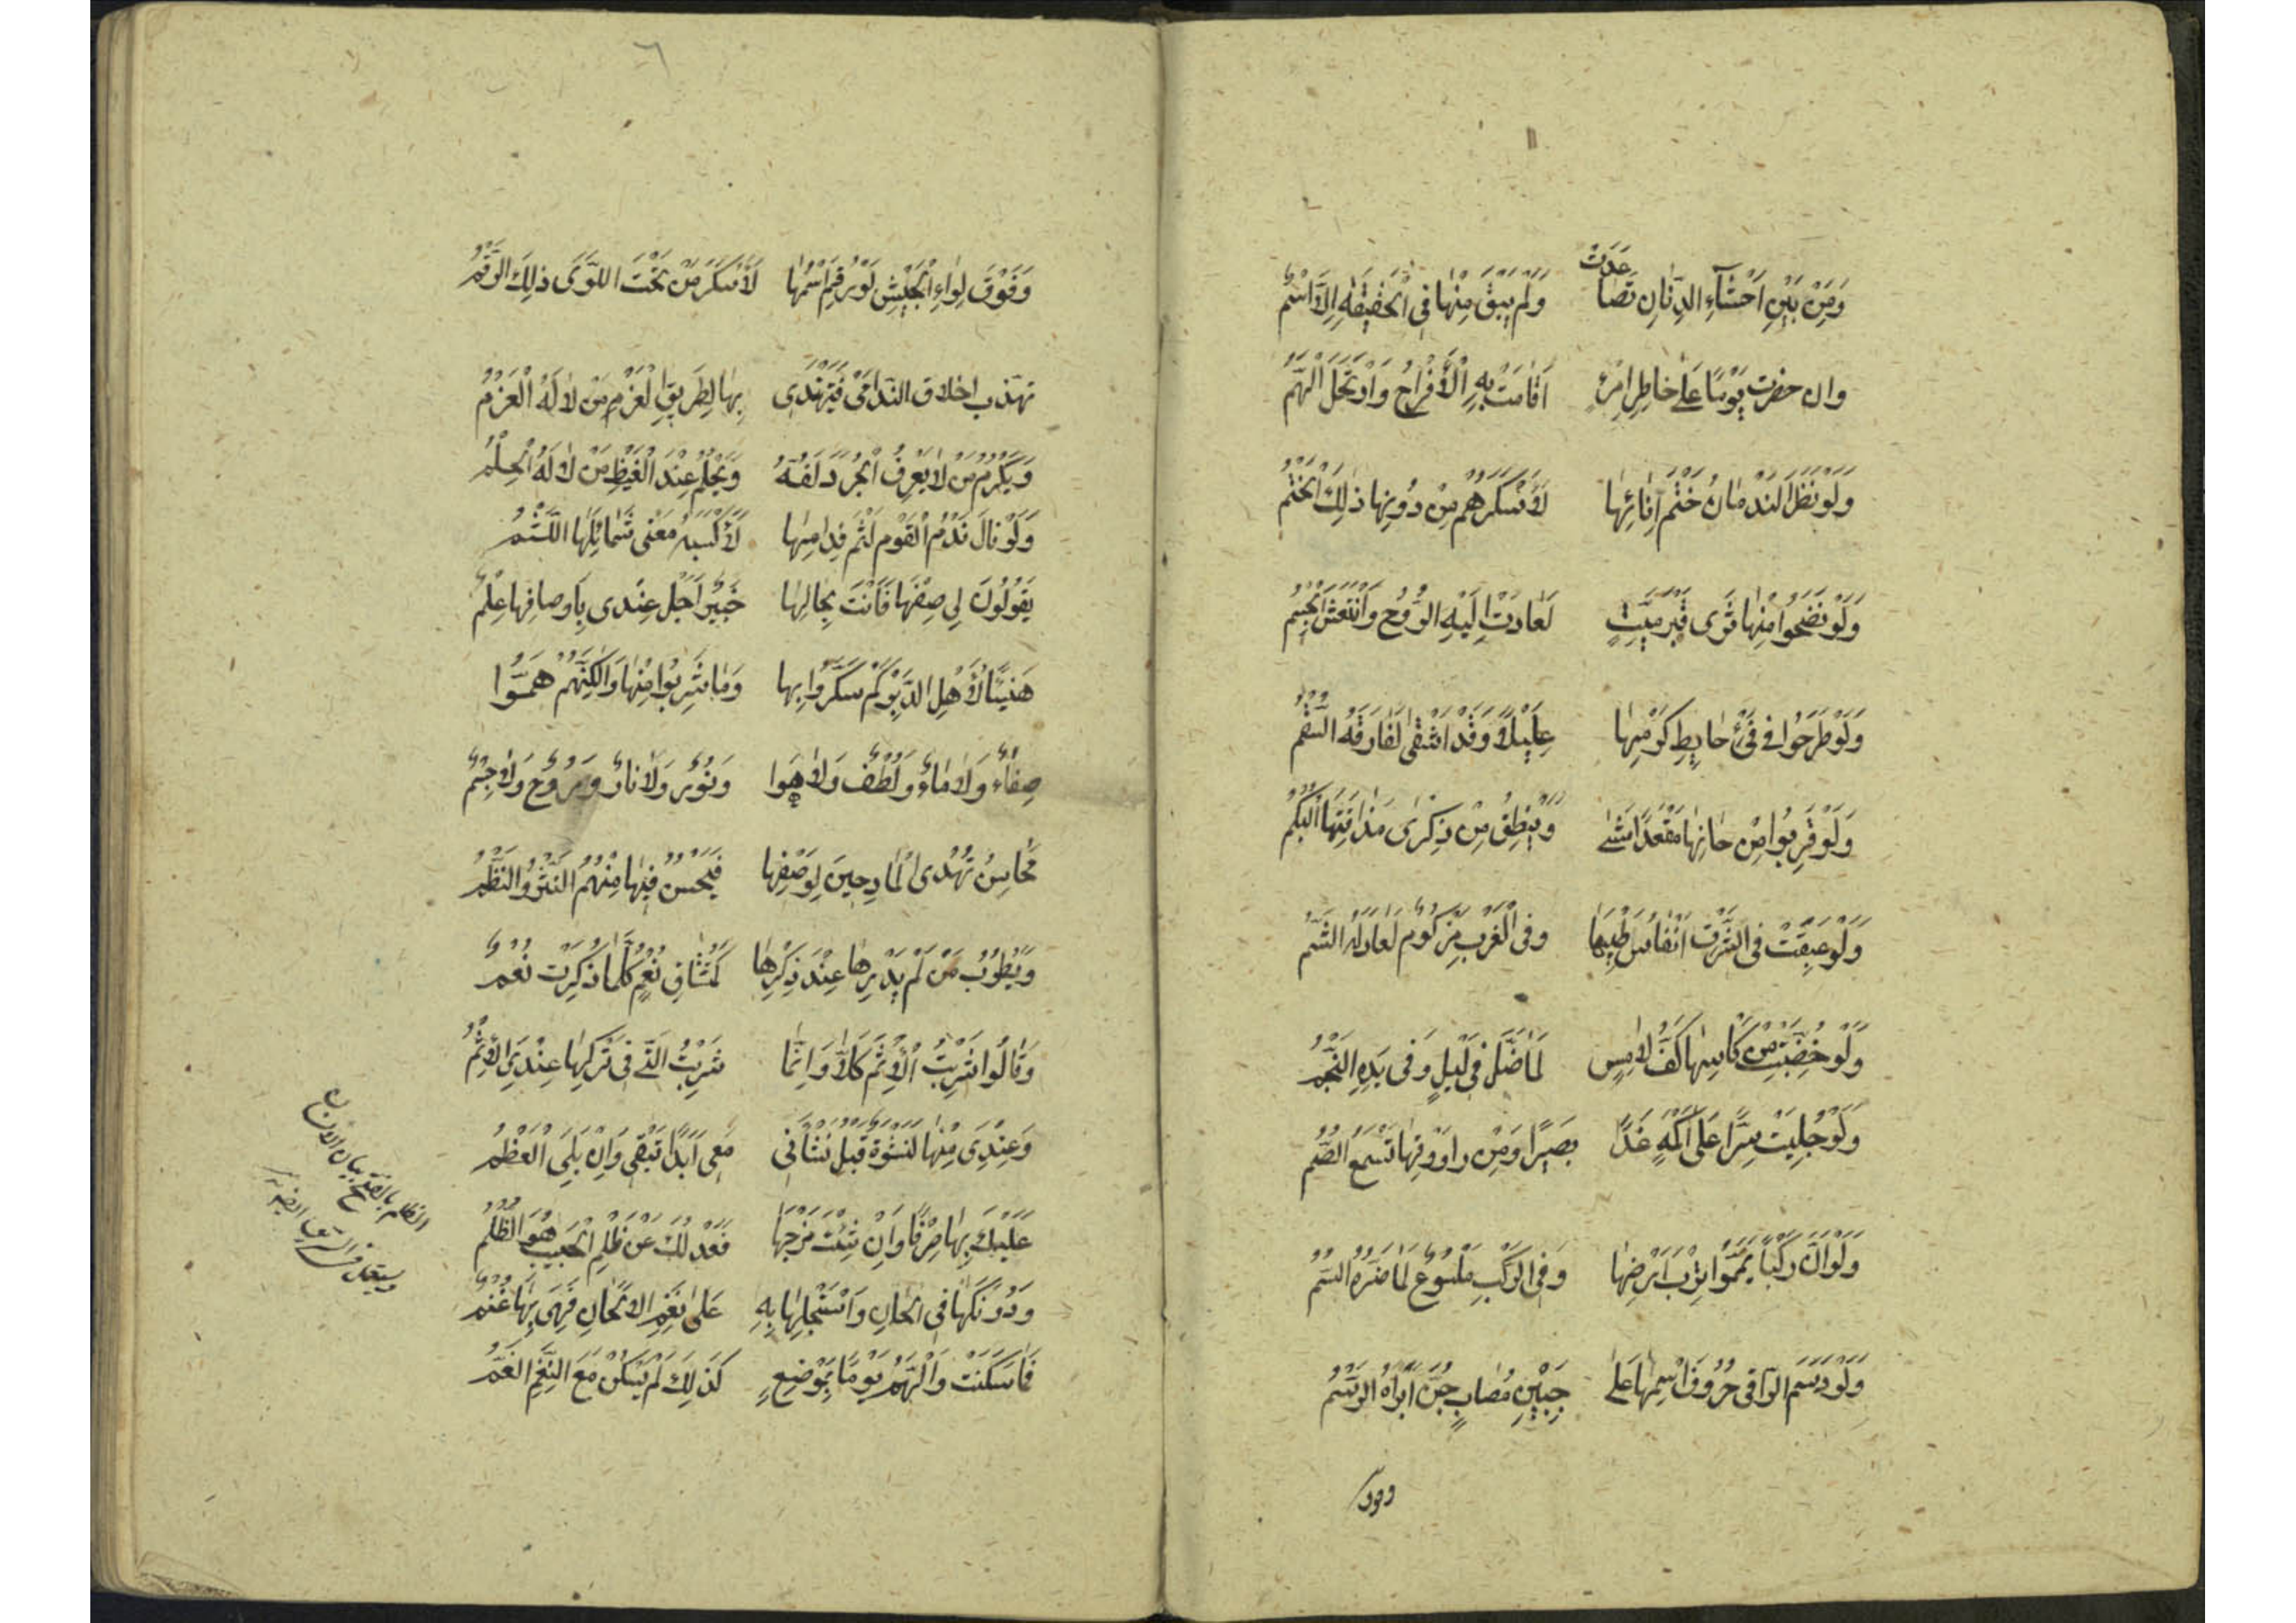 وَمَنْ بَيْنِ اَحْشَآءِ الدِّنَانِ تَصَاعَدَتْ وَلَمْ يَبْقَ مِنْهَا فِي الْحَقِيقَةِ اِلَّا اسْمُ
وان خطرت يَوْمًا عَلٰى خاطِرِ امْرِئٍ اَقَامَتْ بِهِ الْاَفْرَاحُ وَارْتَحَلَ الْهَمُّ
وَلَوْ نَظَرَ النَدْمَانُ خَتْمَ اِنَائِهَا لَاَسْكَرَهُمْ مِنْ دُونِهَا ذٰلِكَ الْخَتْمُ
وَلَوْ نَضَحُوا مِنْهَا ثَرٰى قَبْرِ مَيِّتٍ لَعَادَتْ اِلَيْهِ الرُّوحُ وَانْتَعَشَ الْجِسْمُ
وَلَوْ طَرَحُوا فِي فَيْءِ حَايِطِ كَرْمِهَا عَلِيْلًا وَقَدْ اَشْفٰى لَفَارَقَهُ السُّقْمُ
وَلَوْ قَرِبُوا مِنْ حَانِهَا مُقْعَدًا مَشٰى وَيَنْطِقُ مِنْ ذِكْرٰى مَذَاقَتِهَا الْبُكْمُ
وَلَوْ عَبِقَتْ فِي الشَّرْقِ اَنْفَاسُ طِيبِهَا وَفِي الْغَرْبِ مَزْكُومٌ لَعَادَ لَهُ الشَّمُّ
وَلَوْ خُضِبَتْ مِنْ كَأْسِهَا كَفُّ لَامِسٍ لَمَا ضَلَّ فِي لَيْلٍ وَفِي يَدِهِ النَّجْمُ
وَلَوْ جُلِيَتْ سِرًّا عَلٰى اَكْمَهٍ غَدَا بَصِيرًا وَمِنْ رَاوُوقِهَا تَسْمَعُ الصُّمُّ
وَلَوْ اَنَّ رَكْبًا يَمَّمُوا تُرْبَ اَرْضِهَا وَفِي الرَّكْبِ مَلْسُوعٌ لَمَا ضَرَّهُ السَّمُّ
وَلَوْ رَسَمَ الرَّاقِي حُرُوفَ اسْمِهَا عَلٰى جَبِيْنِ مُصَابٍ جُنَّ اَبْرَاهُ الرَّسْمُ
وفوق
٦
وَفَوْقَ لِوَاءِ الْجَيْشِ لَوْ رُقِمَ اسْمُهَا لَاَسْكَرَ مَنْ تَحْتَ اللِّوٰى ذٰلِكَ الرَّقْمُ
تهذب اخلاق النَّدَامٰى فَيَهْتَدِي بِهَا لِطَرِيقِ الْعَزْمِ مَنْ لَا لَهُ الْعَزْمُ
وَيَكْرُمُ مَنْ لَا يَعْرِفُ الْجُودَ كَفُّهُ وَيَحْلُمُ عِنْدَ الْغَيْظِ مَنْ لَا لَهُ الْحِلْمُ
وَلَوْ نَالَ فَدْمُ الْقَوْمِ لَثْمَ فِدَامِهَا لَاَكْسَبَهُ مَعْنٰى شَمَائِلِهَا اللَّثْمُ
يَقُولُونَ لِي صِفْهَا فَاَنْتَ بِحَالِهَا خَبِيْرٌ اَجَلْ عِنْدِي بِاَوصافِهَا عِلْمُ
هَنِيْئًا لِاَهْلِ الدَّيْرِ كَمْ سَكَرُوا بِهَا وَمَا شَرِبُوا مِنْهَا وَلٰكِنَّهُمْ هَمُّوا
صَفَاءٌ وَلَا مَاءٌ وَلُطْفٌ وَلَا هَوَا وَنُورٌ وَلَا نَارٌ وَرُوحٌ وَلَا جِسْمٌ
مَحَاسِنُ تَهْدِى الْمَادِحِينَ لِوَصْفِهَا فَيَحْسُنُ فِيهَا مِنْهُمُ النَّثْرُ وَالنَّظْمُ
وَيَطْرُبُ مَنْ لَمْ يَدْرِهَا عِنْدَ ذِكْرِهَا كَمُشْتَاقِ نُعْمٍ كُلَّمَا ذُكِرَتْ نُعْمُ
وَقَالُوا شَرِبْتَ الْاِثْمَ كَلَّا وَاِنَّمَا شَرِبْتُ الَّتِي فِي تَرْكِهَا عِنْدِيَ الْاِثْمُ
وَعِنْدِيَ مِنْهَا نَشْوَةٌ قَبْلَ نَشْأَتِي مَعِي اَبَدًا تَبْقٰى وَاِنْ بَلِيَ الْعَظْمُ
عَلَيْكَ بِهَا صِرْفًا وَاِنْ شِئْتَ مَزْجَهَا فَعَدْلُكَ عَنْ ظَلْمِ الْحَبِيبِ هُوَ الظُّلْمُ
وَدُونَكَهَا فِي الْحَانِ وَاسْتَجْلِهَا بِهِ عَلٰى نَغَمِ الْاَلْحَانِ فَهِيَ بِهَا غُنْمُ
فَمَا سَكَنَتْ وَالْهَمُّ يَوْمًا بِمَوْضِعٍ كَذٰلِكَ لَمْ يَسْكُنْ مَعَ النَّغَمِ الْغَمُّ
الظلم بالفتح